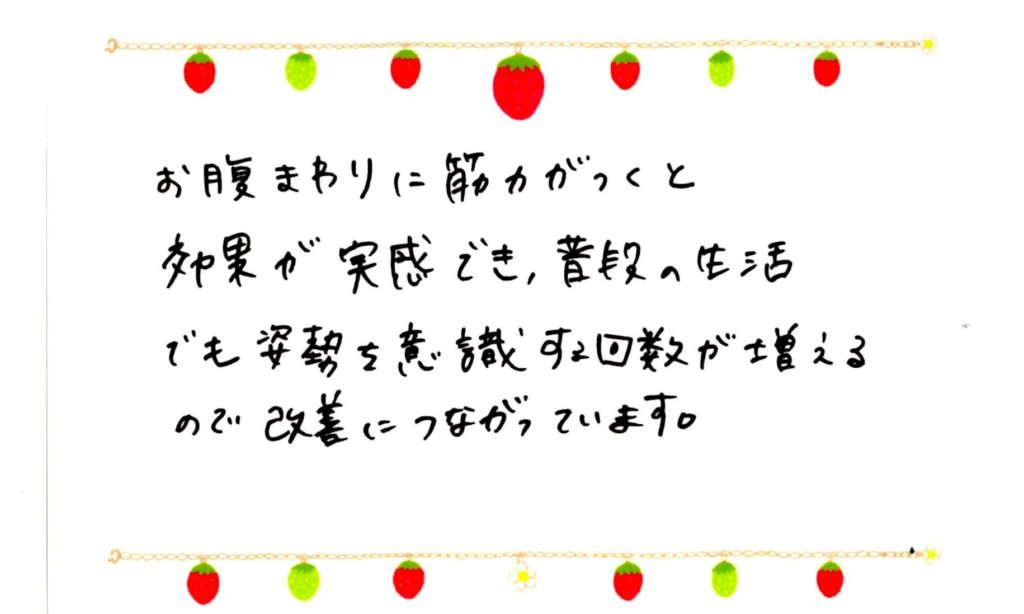 お腹まわりに筋力がつくと
効果が実感でき,普段の生活
でも姿勢を意識する回数が増える
ので改善につながっています。